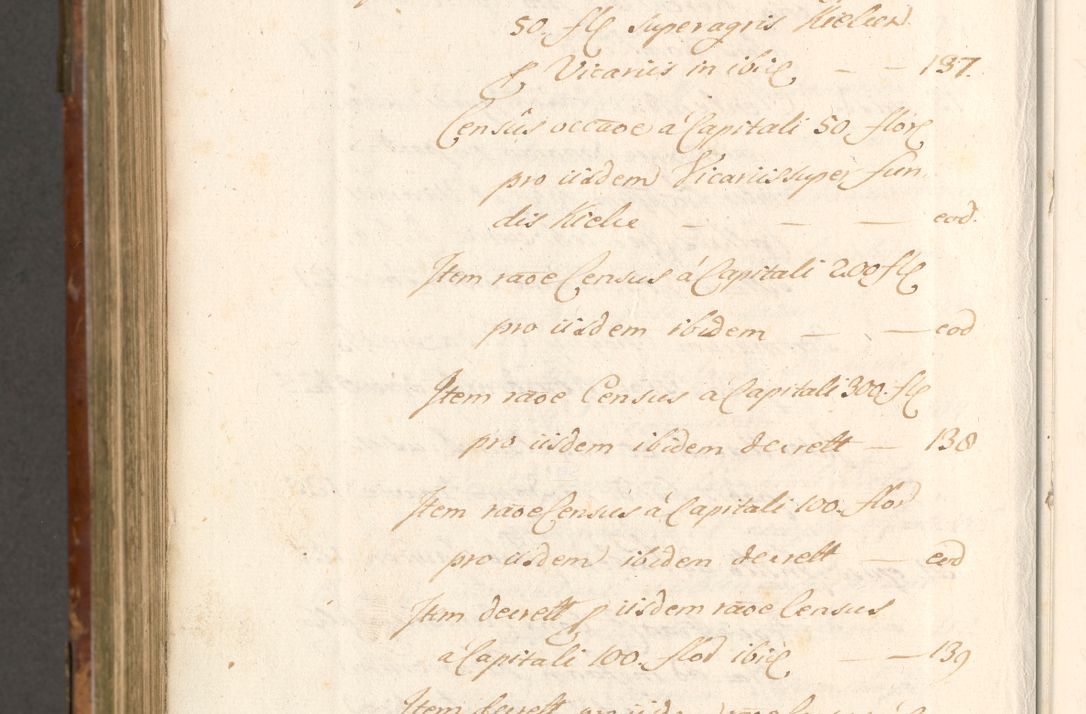 50. fl super agris Kielcen
p Vicariis in ibid — — 137.
Censûs occãoe à Capitali 50 flor
pro iisdem Vicariis super fun
dis Kielce — — — eod.
Item rãoe Census à Capitali 200 fl
pro iisdem ibidem — — eod
Item rãoe Census à Capitali 300. fl
pro iisdem ibidem decrett — 138
Item rãoe Census à Capitali 100. flor
pro iisdem ibidem decrett — eod
Item decrett p iisdem rãoe Census
à Capitali 100. flor ibid — — 139
Item decrett pro iisdem